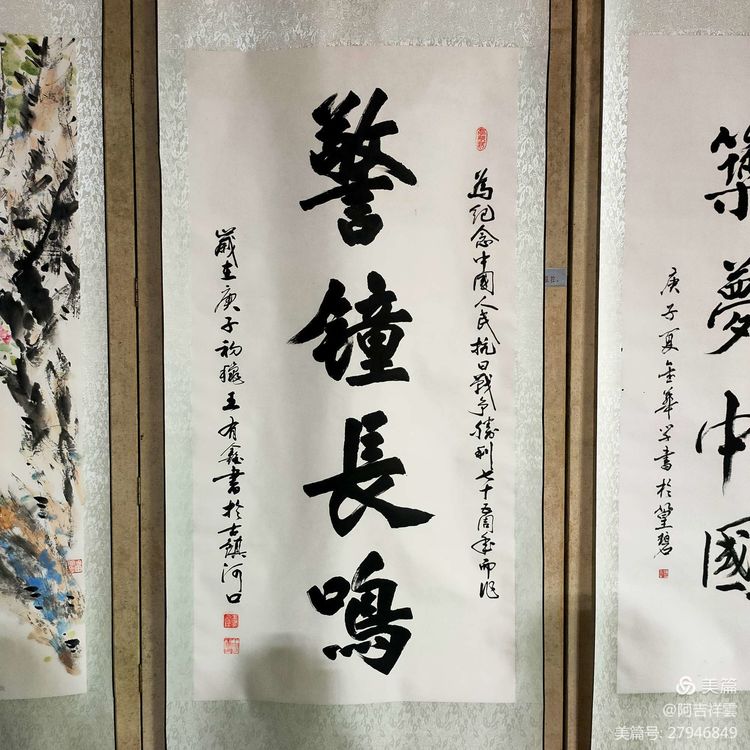 為紀念中國人民抗日戰爭勝利七十五周年而作
警鐘長鳴
歲在庚子初秋王有鑫書於古鎮河口
築夢中國
庚子夏金華學書於
美篇
@阿吉祥雲
美篇号: 27946849